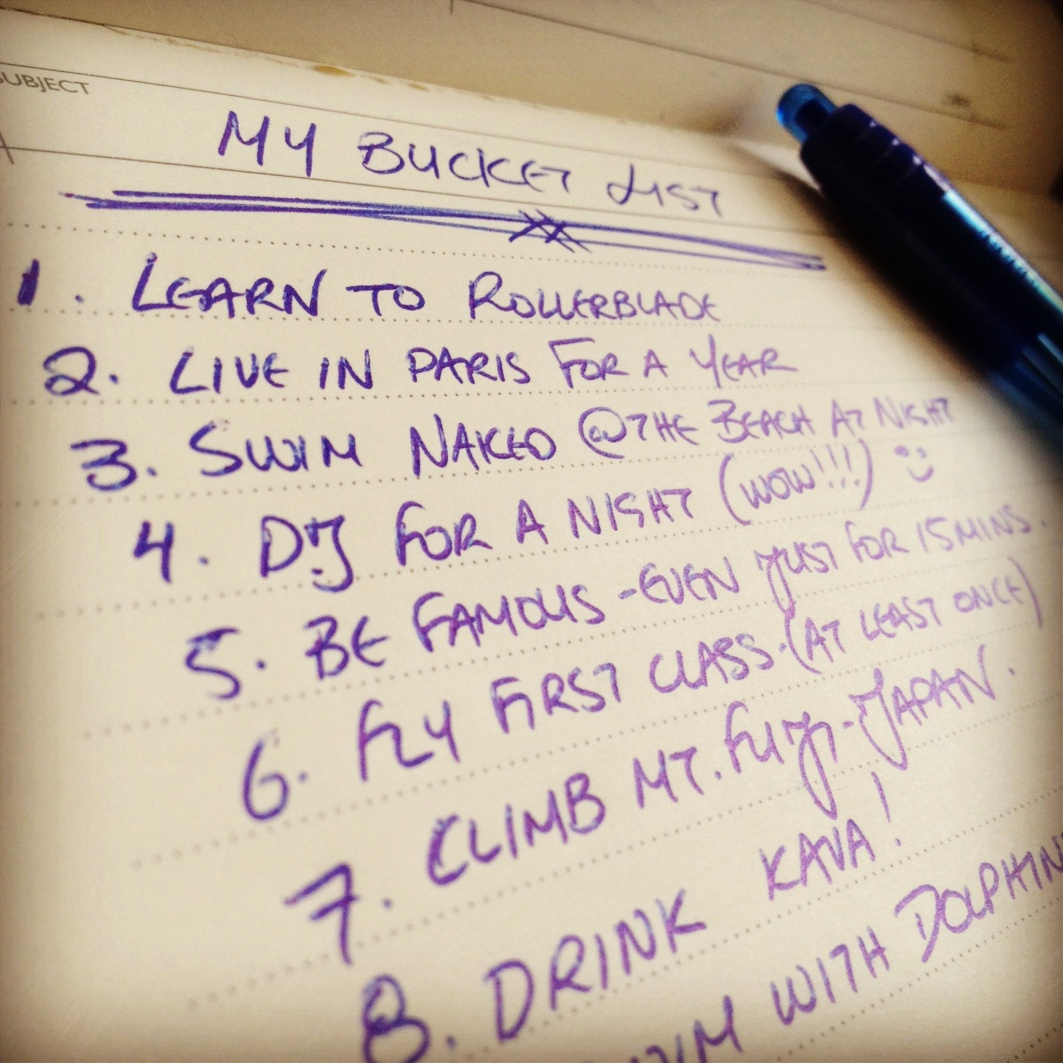 SUBJECT
MY BUCKET LIST
1. LEARN TO ROLLERBLADE
2. LIVE IN PARIS FOR A YEAR
3. SWIM NAKED @ THE BEACH AT NIGHT
4. DJ FOR A NIGHT (WOW!!!)
5. BE FAMOUS - EVEN JUST FOR 15 MINS.
6. FLY FIRST CLASS. (AT LEAST ONCE)
7. CLIMB MT. FUJI - JAPAN.
8. DRINK KAVA!
WITH DOLPHIN